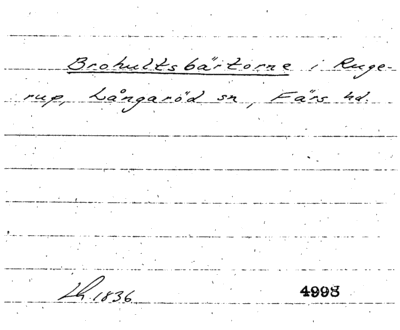 Brohultsbärtorne i Ruge-
rup, Långaröd sn, Färs hd.
Lh. 1836 4993